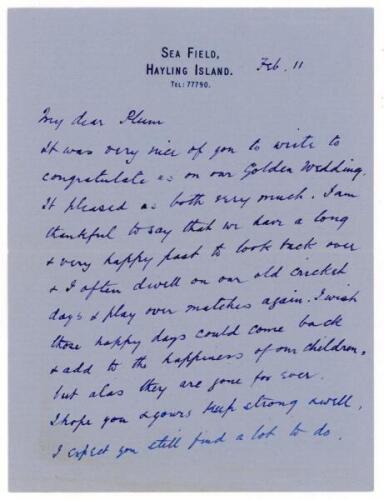 SEA FIELD,
HAYLING ISLAND.
TEL: 77790.
Feb. 11
My dear Plum
It was very nice of you to write to
congratulate us on our Golden Wedding.
It pleased us both very much. I am
thankful to say that we have a long
& very happy past to look back over
& I often dwell on our old cricket
days & play over matches again. I wish
those happy days could come back
& add to the happiness of our children,
but alas they are gone for ever.
I hope you & yours keep strong & well,
I expect you still find a lot to do.